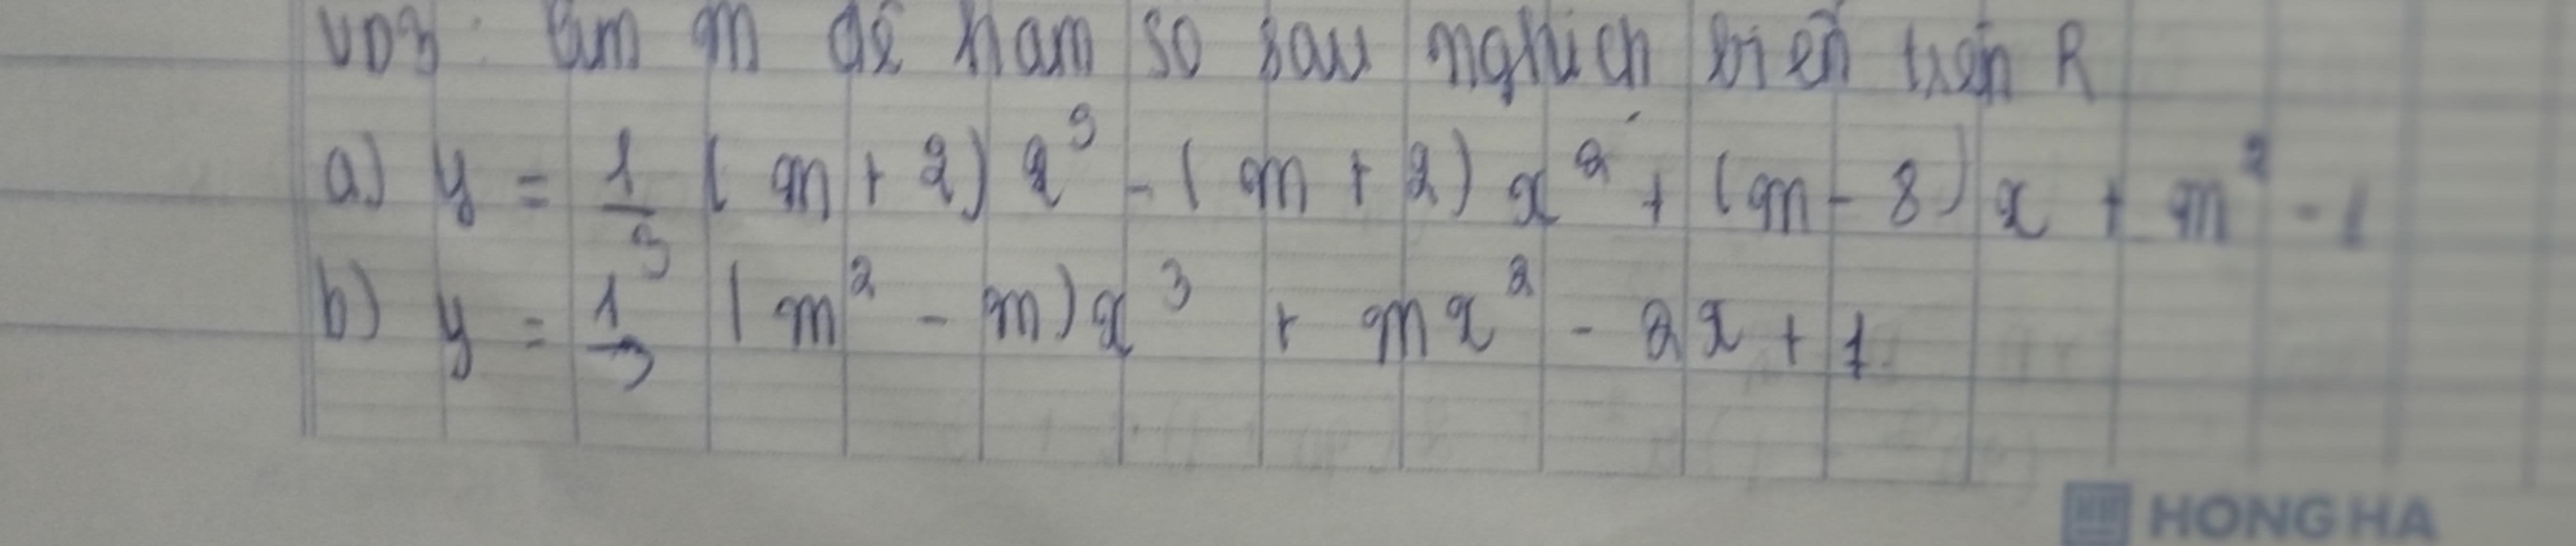 VD3: Tìm m để hàm số sau nghịch biến trên R
a) y = 1/3 (m + 2) x³ - (m + 2) x² + (m - 8) x + m² - 1
b) y = 1/3 (m² - m) x³ + mx² - 2x + 1
HONG HA